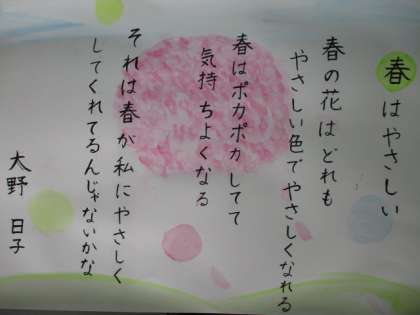 春はやさしい
春の花はどれも
やさしい色でやさしくなれる
春はポカポカしてて
気持ちよくなる
それは春が私にやさしく
してくれてるんじゃないかな
大野 日子